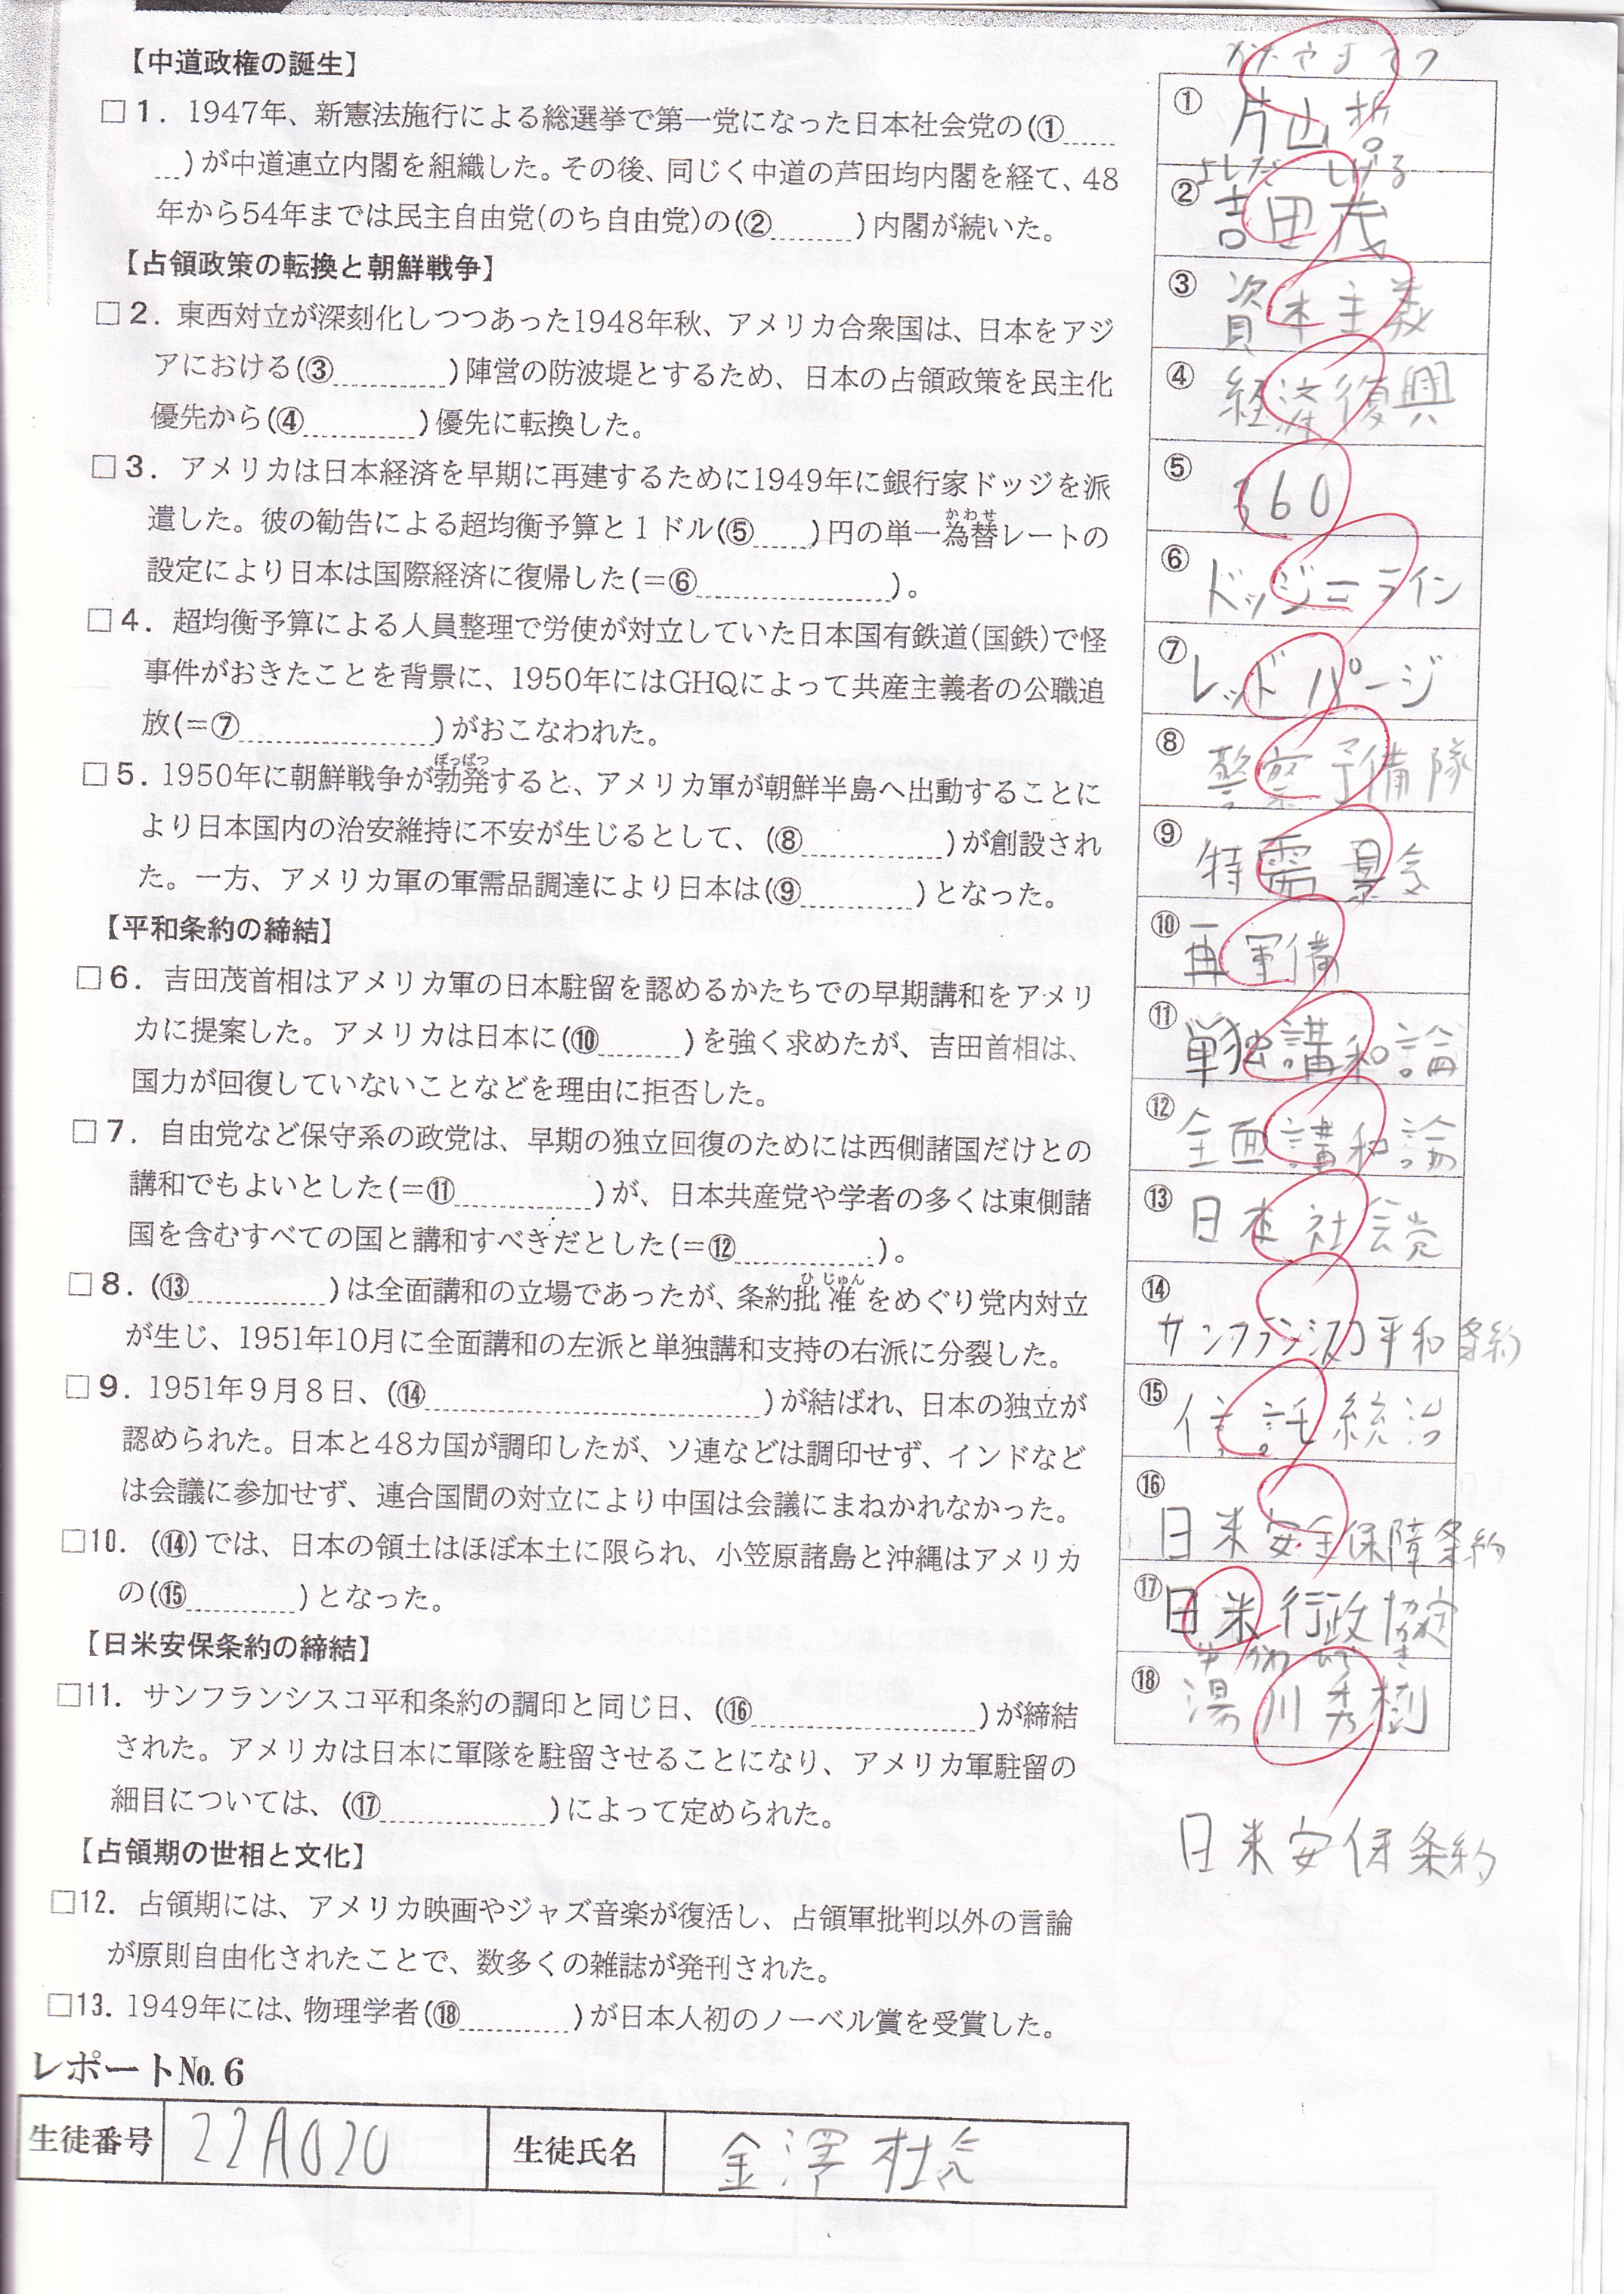 【中道政権の誕生】
□1．1947年、新憲法施行による総選挙で第一党になった日本社会党の(①
)が中道連立内閣を組織した。その後、同じく中道の芦田均内閣を経て、48
年から54年までは民主自由党(のち自由党)の(② )内閣が続いた。
【占領政策の転換と朝鮮戦争】
□2．東西対立が深刻化しつつあった1948年秋、アメリカ合衆国は、日本をアジ
アにおける(③ )陣営の防波堤とするため、日本の占領政策を民主化
優先から(④ )優先に転換した。
□3．アメリカは日本経済を早期に再建するために1949年に銀行家ドッジを派
かわせ
遣した。彼の勧告による超均衡予算と1ドル(⑤ )円の単一為替レートの
設定により日本は国際経済に復帰した(=⑥ )。
□4．超均衡予算による人員整理で労使が対立していた日本国有鉄道(国鉄)で怪
事件がおきたことを背景に、1950年にはGHQによって共産主義者の公職追
放(=⑦ )がおこなわれた。
ぼっぱつ
□5．1950年に朝鮮戦争が勃発すると、アメリカ軍が朝鮮半島へ出動することに
より日本国内の治安維持に不安が生じるとして、(⑧ )が創設され
た。一方、アメリカ軍の軍需品調達により日本は(⑨ )となった。
【平和条約の締結】
□6．吉田茂首相はアメリカ軍の日本駐留を認めるかたちでの早期講和をアメリ
カに提案した。アメリカは日本に(⑩ )を強く求めたが、吉田首相は、
国力が回復していないことなどを理由に拒否した。
□7．自由党など保守系の政党は、早期の独立回復のためには西側諸国だけとの
講和でもよいとした(=⑪ )が、日本共産党や学者の多くは東側諸
国を含むすべての国と講和すべきだとした(=⑫ )。
ひ じゅん
□8．(⑬ )は全面講和の立場であったが、条約批准をめぐり党内対立
が生じ、1951年10月に全面講和の左派と単独講和支持の右派に分裂した。
□9．1951年9月8日、(⑭ )が結ばれ、日本の独立が
認められた。日本と48カ国が調印したが、ソ連などは調印せず、インドなど
は会議に参加せず、連合国間の対立により中国は会議にまねかれなかった。
□10．(⑭)では、日本の領土はほぼ本土に限られ、小笠原諸島と沖縄はアメリカ
の(⑮ )となった。
【日米安保条約の締結】
□11．サンフランシスコ平和条約の調印と同じ日、(⑯ )が締結
された。アメリカは日本に軍隊を駐留させることになり、アメリカ軍駐留の
細目については、(⑰ )によって定められた。
【占領期の世相と文化】
□12．占領期には、アメリカ映画やジャズ音楽が復活し、占領軍批判以外の言論
が原則自由化されたことで、数多くの雑誌が発刊された。
□13．1949年には、物理学者(⑱ )が日本人初のノーベル賞を受賞した。
かたやまてつ
① 片山哲
よしだ しげる
② 吉田茂
③ 資本主義
④ 経済復興
⑤ 360
⑥ ドッジ=ライン
⑦ レッドパージ
⑧ 警察予備隊
⑨ 特需景気
⑩ 再軍備
⑪ 単独講和論
⑫ 全面講和論
⑬ 日本社会党
⑭ サンフランシスコ平和条約
⑮ 信託統治
⑯ 日米安全保障条約
⑰ 日米行政協定
ゆかわ ひでき
⑱ 湯川秀樹
日米安保条約
レポートNo.6
生徒番号 22A020 生徒氏名 金澤